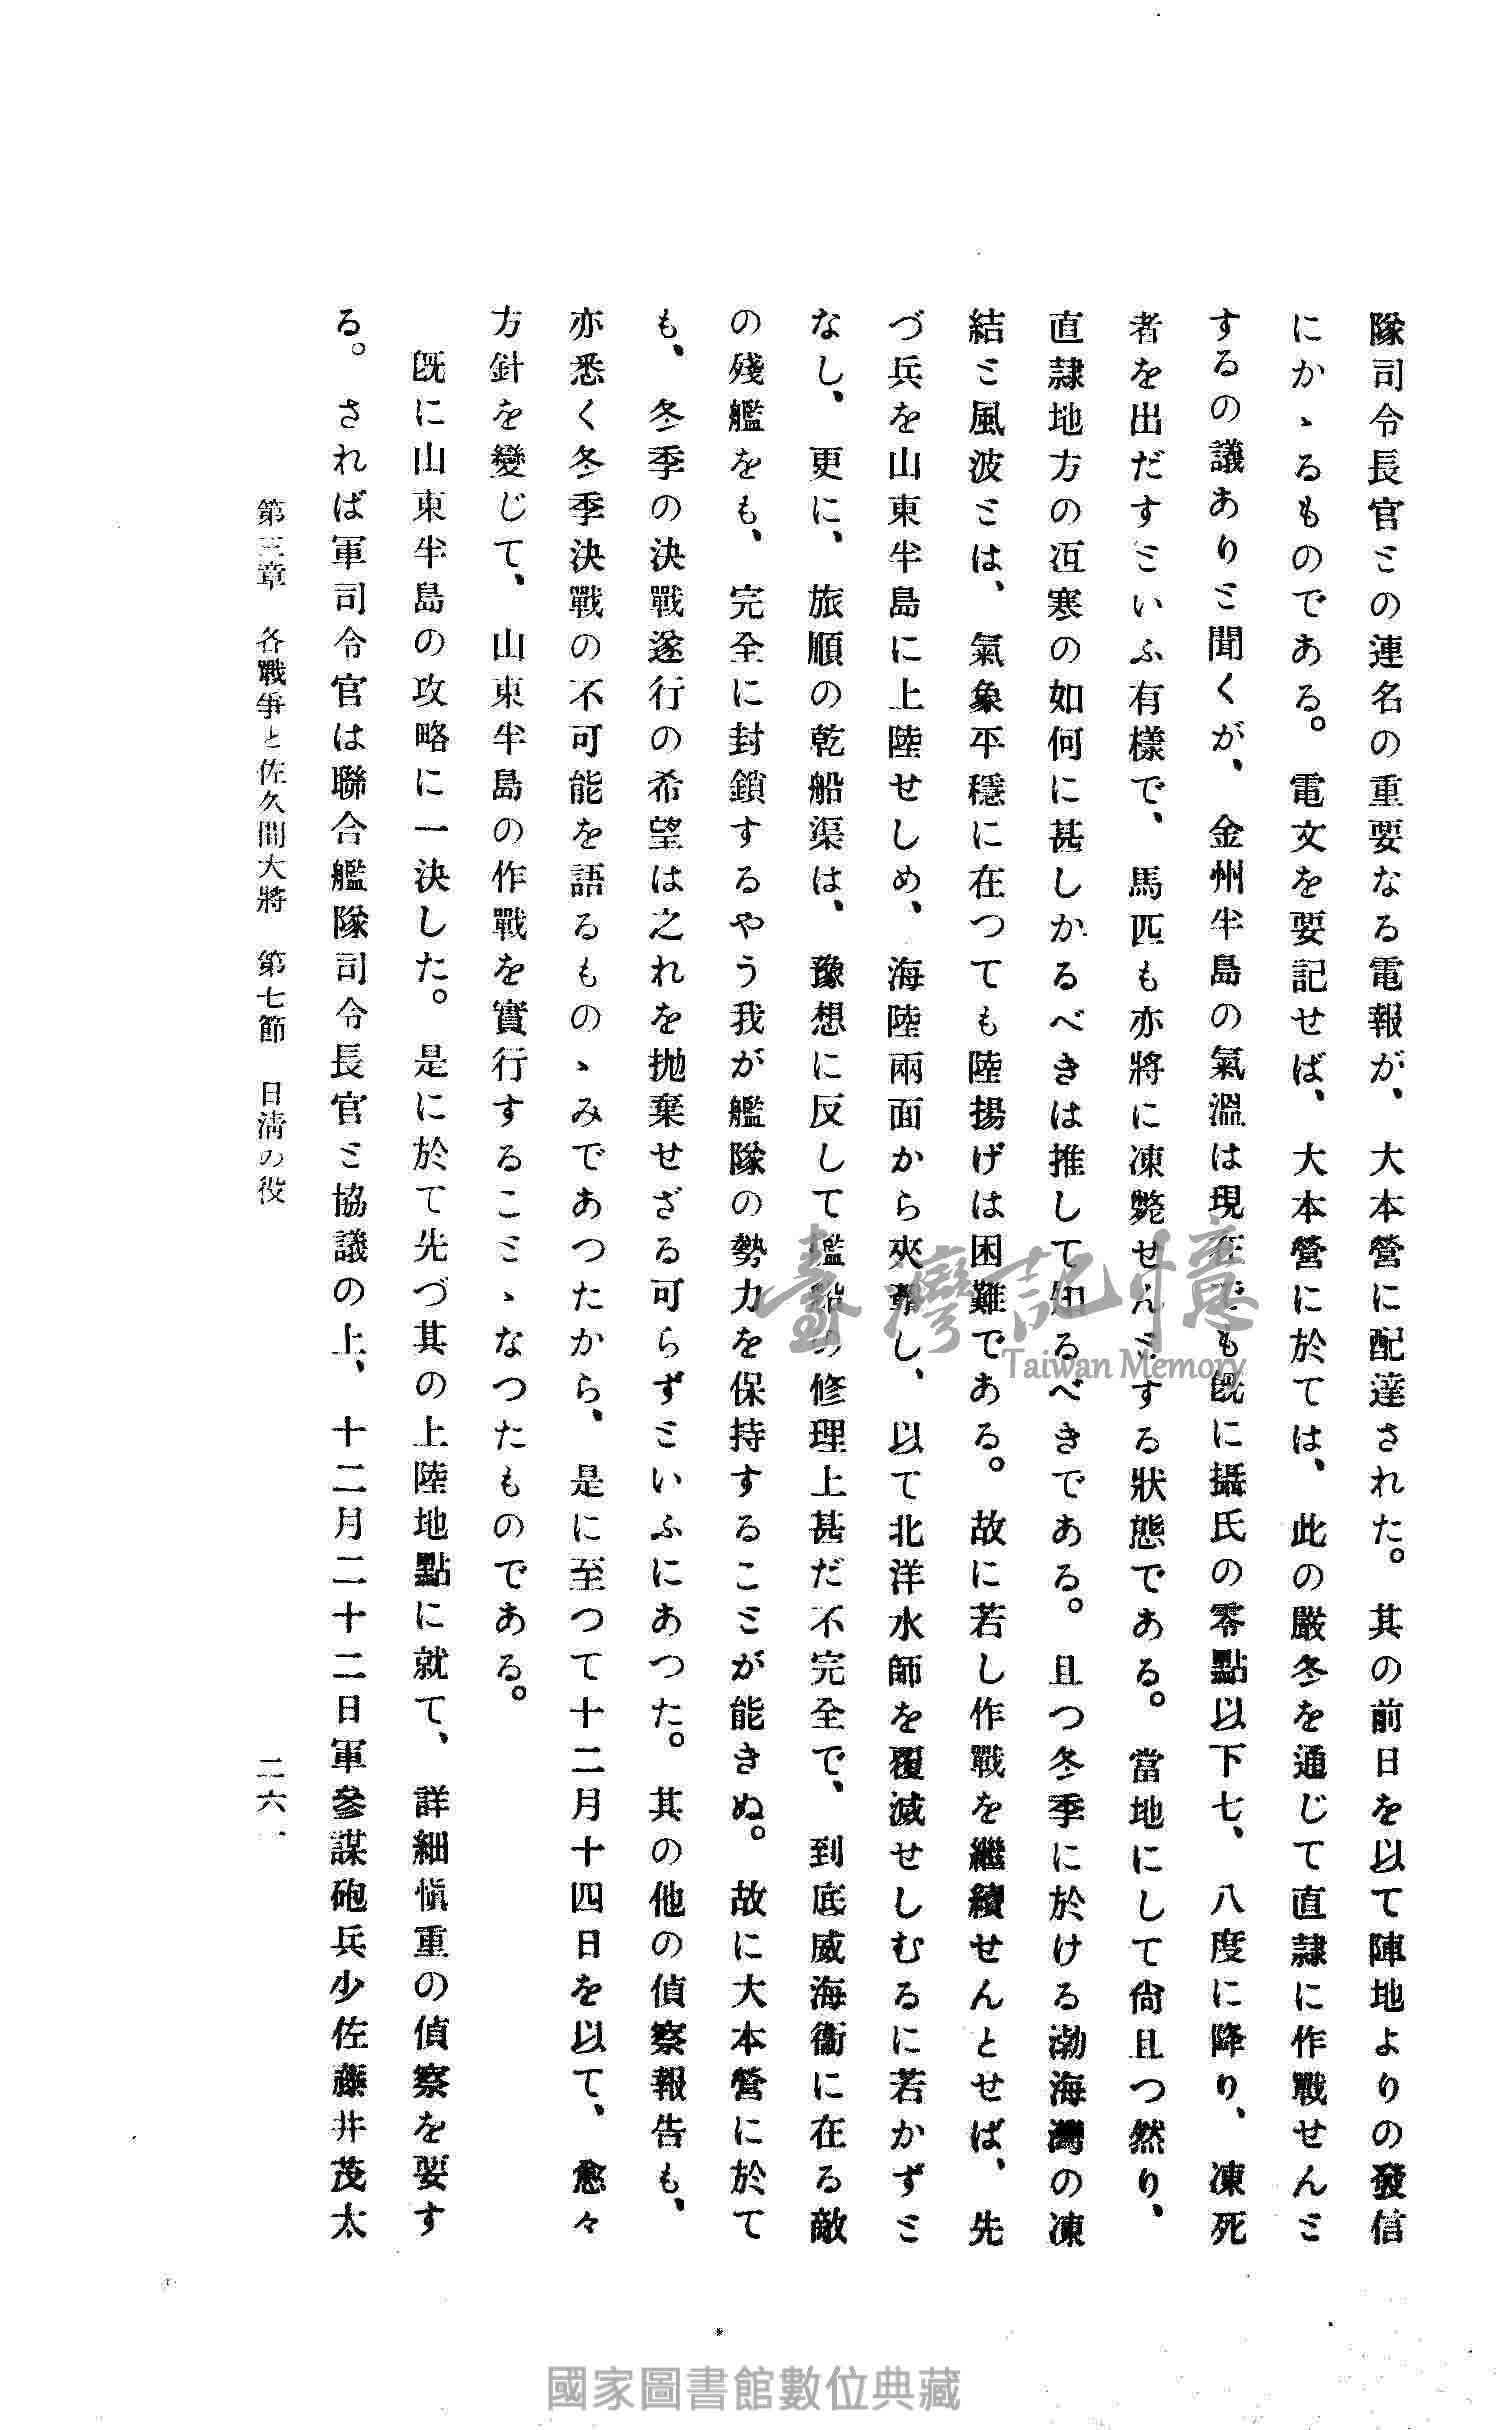 隊司令長官ミの連名の重要なる電報が、大本營に配達された。其の前日を以て陣地よりの發信
にかゝるものである。電文を要記せば、大本營に於ては、此の嚴冬を通じて直隷に作戰せんミ
するの議ありミ聞くが、金州半島の氣溫は現在でも既に攝氏の零點以下七、八度に降り、凍死
者を出だすミいふ有樣で、馬匹も亦將に凍斃せんミする狀態である。當地にして尙且つ然り、
直隷地方の冱寒の如何に甚しかるべきは推して知るべきである。且つ冬季に於ける渤海灣の凍
結ミ風波ミは、氣象平穩に在つても陸揚げは困難である。故に若し作戰を繼續せんとせば、先
づ兵を山東半島に上陸せしめ、海陸兩面から夾擊し、以て北洋水師を覆滅せしむるに若かずミ
なし、更に、旅順の乾船渠は、豫想に反して艦船の修理上甚だ不完全で、到底威海衞に在る敵
の殘艦をも、完全に封鎖するやう我が艦隊の勢力を保持するこミが能きぬ。故に大本營に於て
も、冬季の決戰遂行の希望は之れを抛棄せざる可らずミいふにあつた。其の他の偵察報告も、
亦悉く冬季決戰の不可能を語るものゝみであつたから、是に至つて十二月十四日を以て、愈々
方針を變じて、山東半島の作戰を實行するこミゝなつたものである。
既に山東半島の攻略に一決した。是に於て先づ其の上陸地點に就て、詳細愼重の偵察を要す
る。されば軍司令官は聯合艦隊司令長官ミ協議の上、十二月二十二日軍參謀砲兵少佐藤井茂太
第三章 各戰爭と佐久間大將 第七節 日淸の役 二六一
臺灣記憶
Taiwan Memory
國家圖書館數位典藏